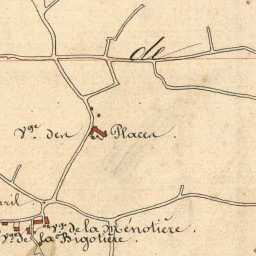 de
V.ge des Places.
ril
V.ge de la Ménotière.
V.ge de la Bigotière.